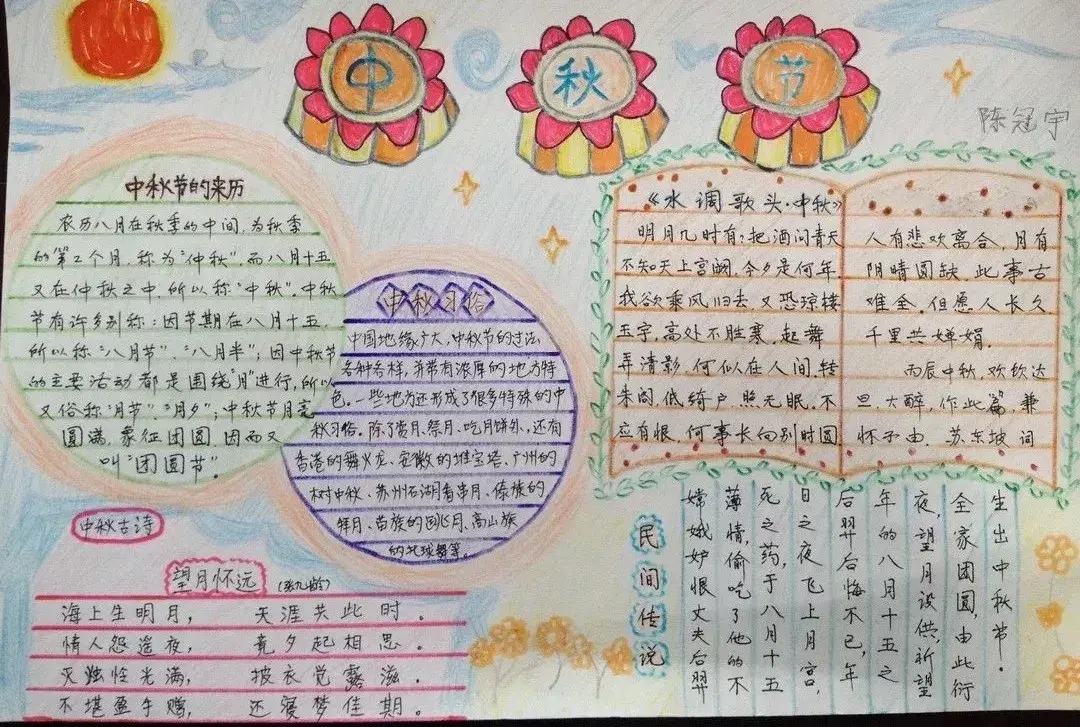 中秋节
陈冠宇
中秋节的来历
农历八月在秋季的中间,为秋季
的第2个月,称为“仲秋”,而八月十五
又在仲秋之中,所以称“中秋”。中秋
节有许多别称:因节期在八月十五,
所以称“八月节”、“八月半”;因中秋节
的主要活动都是围绕“月”进行,所以
又俗称“月节”、“月夕”;中秋节月亮
圆满,象征团圆,因而又
叫“团圆节”。
中秋习俗
中国地缘广大,中秋节的过法
各种各样,并带有浓厚的地方特
色。一些地方还形成了很多特殊的中
秋习俗。除了赏月、祭月、吃月饼外,还有
香港的舞火龙、安徽的堆宝塔、广州的
树中秋、苏州石湖看串月、傣族的
拜月、苗族的跳月、高山族
的托球舞等。
《水调歌头·中秋》
明月几时有?把酒问青天
不知天上宫阙,今夕是何年
我欲乘风归去,又恐琼楼
玉宇,高处不胜寒,起舞
弄清影,何似在人间,转
朱阁,低绮户,照无眠,不
应有恨,何事长向别时圆
人有悲欢离合,月有
阴晴圆缺,此事古
难全。但愿人长久
千里共婵娟。
丙辰中秋,欢饮达
旦,大醉,作此篇,兼
怀子由.苏东坡 词
中秋古诗
望月怀远(张九龄)
海上生明月,天涯共此时。
情人怨遥夜,竟夕起相思。
灭烛怜光满,披衣觉露滋。
不堪盈手赠,还寝梦佳期。
民间传说
嫦娥妒恨丈夫后羿
薄情,偷吃了他的不
死之药,于八月十五
日之夜飞上月宫,
后羿后悔不已,年
年的八月十五之
夜,望月设供,祈望
全家团圆,由此衍
生出中秋节。